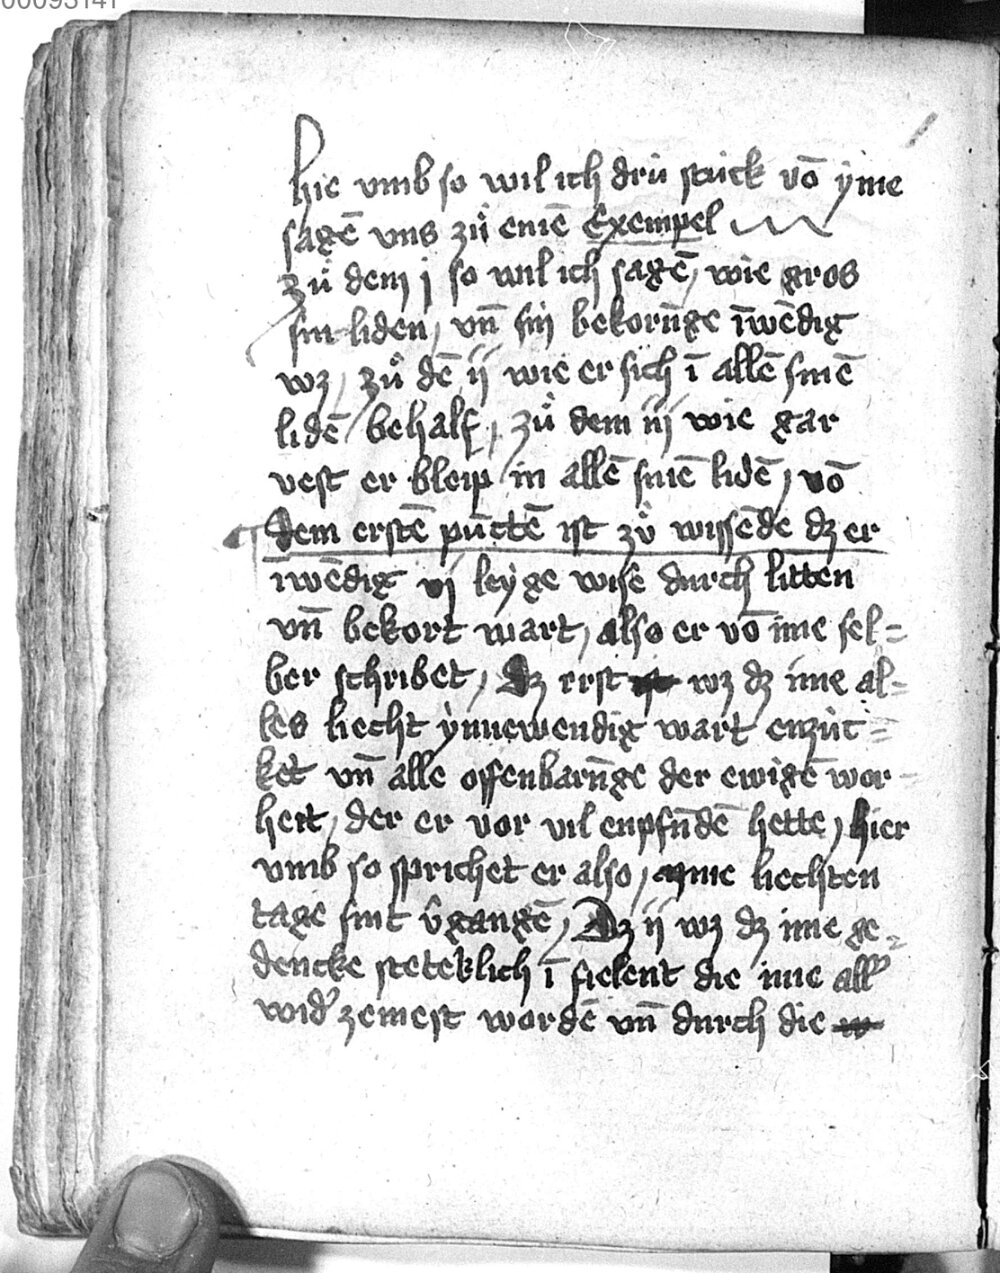 hie vmb so wil ich drü stück vō ẏme
sagē vns zů enīe Exempel
zů dem j so wil ich sagē, wie gros
sin liden, vn̄ sin bekorn̄ge īwēdig
wz, zů dē ij wie er sich ī allē sinē
lidē behalf, zů dem iij wie gar
vest er bleip in allē sinē lidē, vō
dem erstē pūctē ist zů wissēde dz er
īwēdig vj leyge wise durch litten
vn̄ bekort wart, also er vō ime sel=
ber schribet, Dz erst wz dz ime al=
les liecht ẏnnewendig wart enzüc=
ket vn̄ alle offenbarn̄ge der ewigē wor-
heit, der er vor vil enpfn̄dē hette, hier
vmb so sprichet er also, mine liechten
tage sint v̂gangē, Dz ij wz dz ime ge=
dencke steteklich ī fielent die ime all'
wid' zemest wordē vn̄ durch die